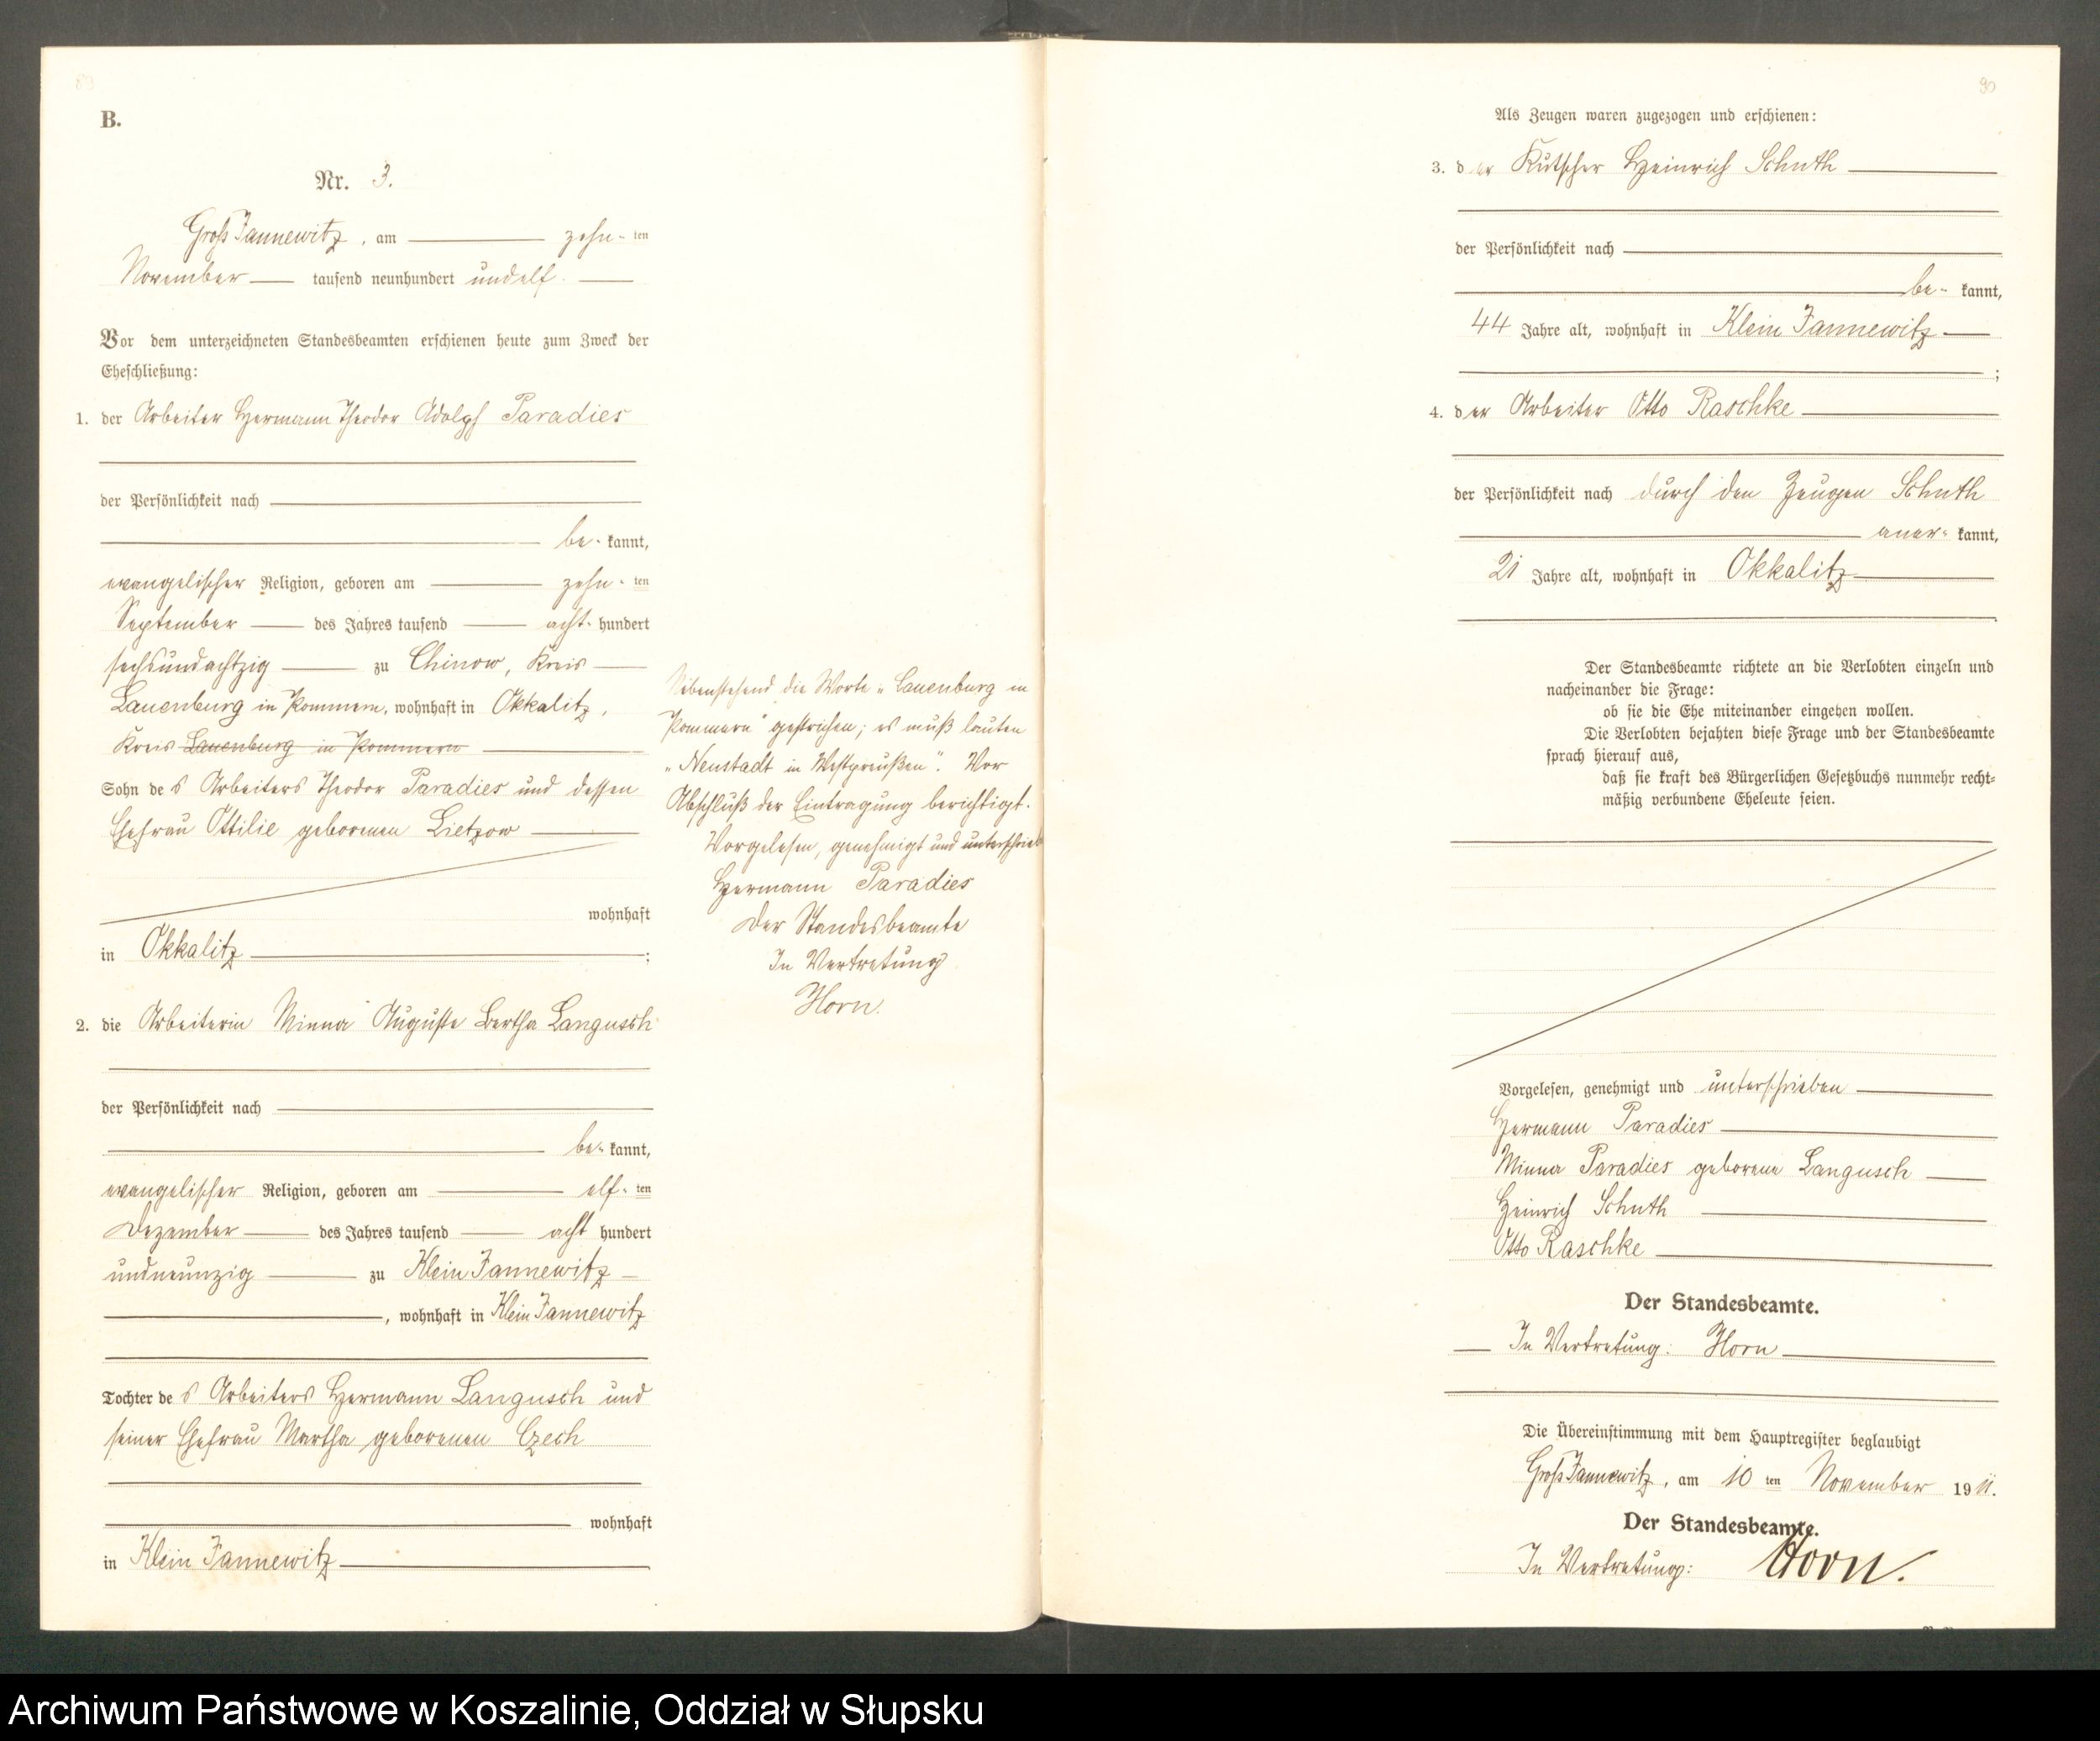 89
B.
Nr. 3.
Groß Jannewitz, am zehn-ten
November tausend neunhundert undelf.
Vor dem unterzeichneten Standesbeamten erschienen heute zum Zweck der
Eheschließung:
1. der Arbeiter Hermann Theodor Adolph Paradies
der Persönlichkeit nach
be-kannt,
evangelischer Religion, geboren am zehn-ten
September des Jahres tausend acht-hundert
sechsundachtzig zu Chinow, Kreis
Lauenburg in Pommern, wohnhaft in Okkalitz,
Kreis Lauenburg in Pommern
Sohn des Arbeiters Theodor Paradies und dessen
Ehefrau Ottilie geborenen Lietzow
wohnhaft
in Okkalitz;
2. die Arbeiterin Minna Auguste Bertha Langusch
der Persönlichkeit nach
be-kannt,
evangelischer Religion, geboren am elf-ten
Dezember des Jahres tausend acht hundert
undneunzig zu Klein Jannewitz
, wohnhaft in Klein Jannewitz
Tochter des Arbeiters Hermann Langusch und
seiner Ehefrau Martha geborenen Czech
wohnhaft
in Klein Jannewitz
Nebenstehend die Worte „Lauenburg in
Pommern" gestrichen; es muß lauten
„Neustadt in Westpreußen". Vor
Abschluß der Eintragung berichtigt.
Vorgelesen, genehmigt und unterschrieb
Hermann Paradies
Der Standesbeamte
In Vertretung
Horn.
90
Als Zeugen waren zugezogen und erschienen:
3. der Kutscher Heinrich Schuth
der Persönlichkeit nach
be-kannt,
44 Jahre alt, wohnhaft in Klein Jannewitz
;
4. der Arbeiter Otto Raschke
der Persönlichkeit nach durch den Zeugen Schuth
aner-kannt,
21 Jahre alt, wohnhaft in Okkalitz
.
Der Standesbeamte richtete an die Verlobten einzeln und
nacheinander die Frage:
ob sie die Ehe miteinander eingehen wollen.
Die Verlobten bejahten diese Frage und der Standesbeamte
sprach hierauf aus,
daß sie kraft des Bürgerlichen Gesetzbuchs nunmehr recht-
mäßig verbundene Eheleute seien.
Vorgelesen, genehmigt und unterschrieben
Hermann Paradies
Minna Paradies geborene Langusch
Heinrich Schuth
Otto Raschke
Der Standesbeamte.
In Vertretung: Horn
Die Übereinstimmung mit dem Hauptregister beglaubigt
Groß Jannewitz, am 10 ten November 1911.
Der Standesbeamte.
In Vertretung: Horn.
Archiwum Państwowe w Koszalinie, Oddział w Słupsku